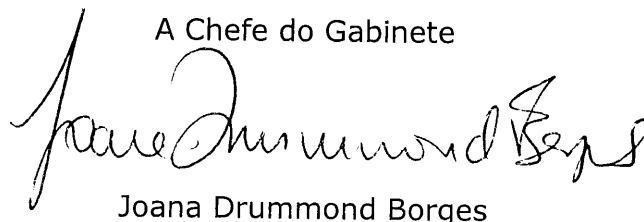 A Chefe do Gabinete
Joana Drummond Borges
Joana Drummond Borges